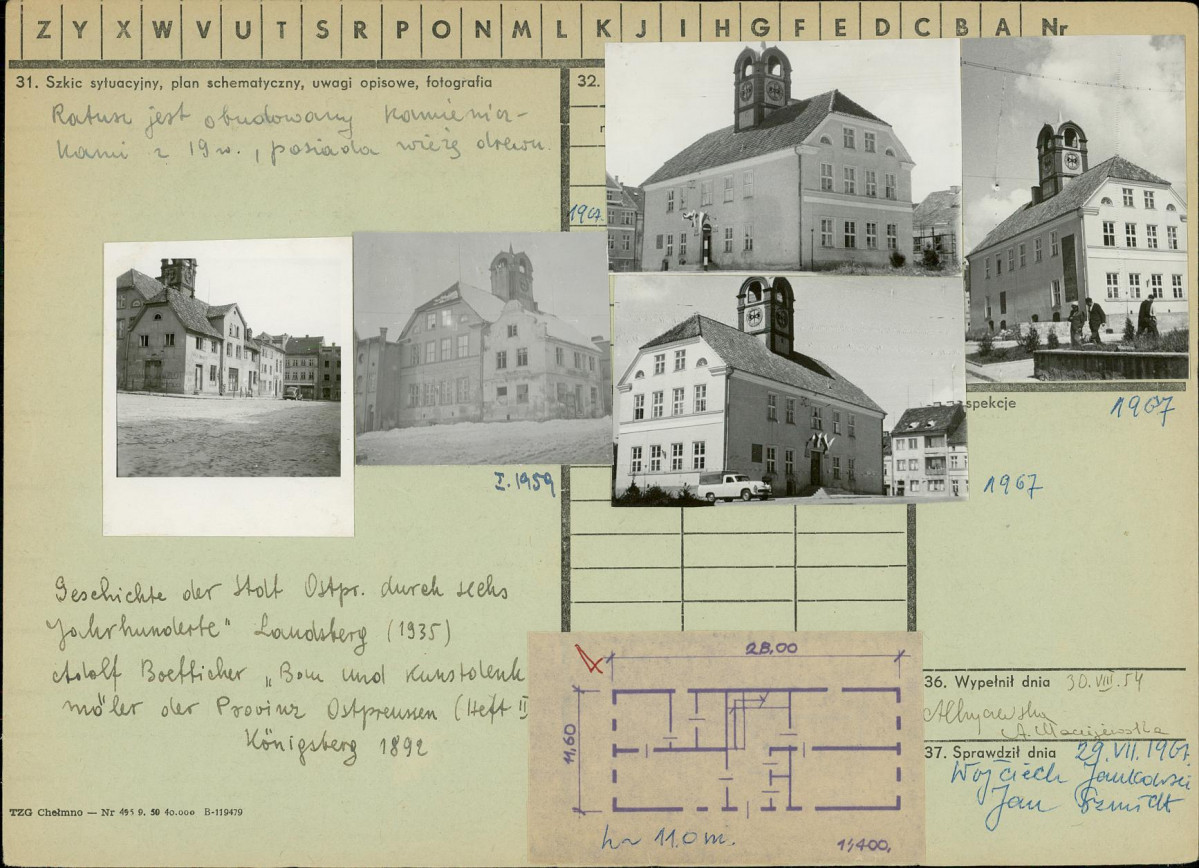 Z Y X W V U T S R P O N M L K J I H G F E D C B A Nr
31. Szkic sytuacyjny, plan schematyczny, uwagi opisowe, fotografia
32.
Ratusz jest obudowany kamienicz-
kami z 19 w., posiada wieżę drewn.
196
I.1959
spekcje
1967
1967
Geschichte der Stdt Ostpr. durch sechs
Jahrhunderte" Landsberg (1935)
Adolf Boetticher „Bau und Kunstdenk
mäler der Provinz Ostpreussen (Heft II
Königsberg 1892
4
28,00
11,60
h~ 11.0 m.
1:400.
36. Wypełnił dnia 30.VIII.54
A. Maciejewska
37. Sprawdził dnia 29.VII.1967.
Wojciech Jankowski
Jan Szmidt
TZG Chełmno — Nr 495 9. 50 40.000 B-119479